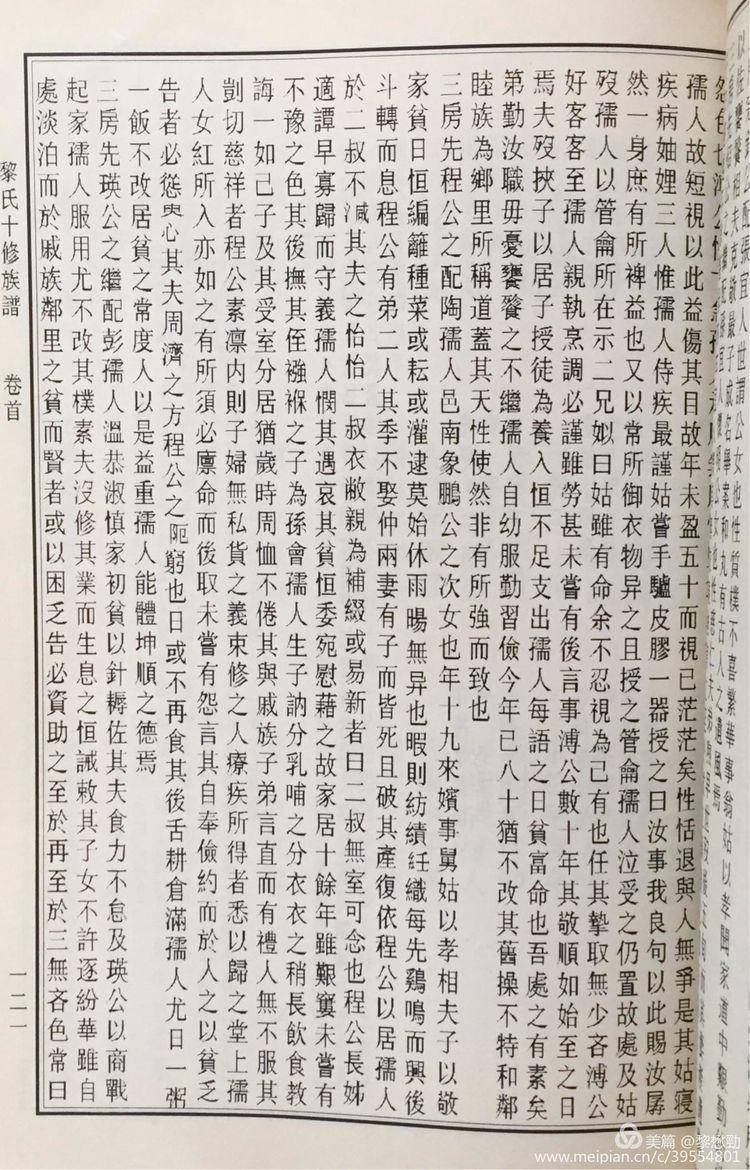 以佐饔飧相夫克敬最子成名舉案和丸有古人之遺風焉
孺人故短視以此益傷其目故年未盈五十而視已茫茫矣性恬退與人無爭是其姑寢
疾病妯娌三人惟孺人侍疾最謹姑嘗手驢皮膠一器授之曰汝事我良句以此賜汝孱
然一身庶有所裨益也又以常所御衣物異之且授之管鑰孺人泣受之仍置故處及姑
歿孺人以管鑰所在示二兄姒曰姑雖有命余不忍視為己有也任其摯取無少吝溥公
好客客至孺人親執烹調必謹雖勞甚未嘗有後言事溥公數十年其敬順如始至之日
焉夫歿挾子以居子授徒為養入恒不足支出孺人每語之曰貧富命也吾處之有素矣
第勤汝職毋憂饔飧之不繼孺人自幼服勤習儉今年已八十猶不改其舊操不特和鄰
睦族為鄉里所稱道蓋其天性使然非有所強而致也
三房先程公之配陶孺人邑南象鵬公之次女也年十九來嬪事舅姑以孝相夫子以敬
家貧日恒編籬種菜或耘或灌逮莫始休雨暘無异也暇則紡績紝織每先鷄鳴而興後
斗轉而息程公有弟二人其季不娶仲兩妻有子而皆死且破其產復依程公以居孺人
於二叔不減其夫之怡怡二叔衣敝親為補綴或易新者曰二叔無室可念也程公長姊
適譚早寡歸而守義孺人憫其遇哀其貧恒委宛慰藉之故家居十餘年雖艱窶未嘗有
不豫之色其後撫其侄襁褓之子為孫會孺人生子訥分乳哺之分衣衣之稍長飲食教
誨一如己子及其受室分居猶歲時周恤不倦其與戚族子弟言直而有禮人無不服其
剴切慈祥者程公素凛内則子婦無私貨之義束修之人療疾所得者悉以歸之堂上孺
人女紅所入亦如之有所須必廪命而後取未嘗有怨言其自奉儉約而於人之以貧乏
告者必慫臾其夫周濟之方程公之阨窮也日或不再食其後舌耕倉滿孺人尤日一粥
一飯不改居貧之常度人以是益重孺人能體坤順之德焉
三房先瑛公之繼配彭孺人溫恭淑慎家初貧以針耨佐其夫食力不怠及瑛公以商戰
起家孺人服用尤不改其樸素夫沒修其業而生息之恒誡敕其子女不許逐紛華雖自
處淡泊而於戚族鄰里之貧而賢者或以困乏告必資助之至於再至於三無吝色常曰
黎氏十修族譜 卷首
一二一
美篇 @黎愁勁
www.meipian.cn/c/39554801